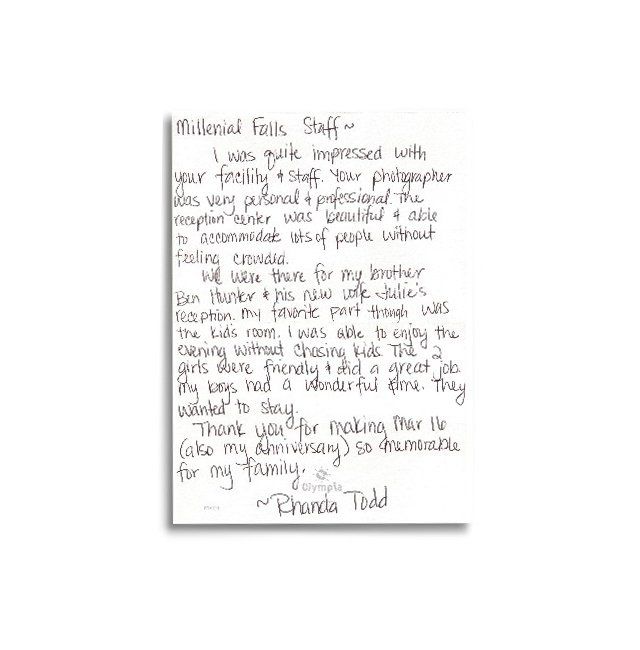 Millenial Falls Staff ~
I was quite impressed with
your facility & staff. Your photographer
was very personal & professional. The
reception center was beautiful & able
to accommodate lots of people without
feeling crowded.
We were there for my brother
Ben Hunter & his new wife Julie's
reception. My favorite part though was
the kid's room. I was able to enjoy the
evening without chasing kids. The 2
girls were friendly & did a great job.
My boys had a wonderful time. They
wanted to stay.
Thank you for making Mar 16
(also my anniversary) so memorable
for my family.
Olympia
~Rhanda Todd